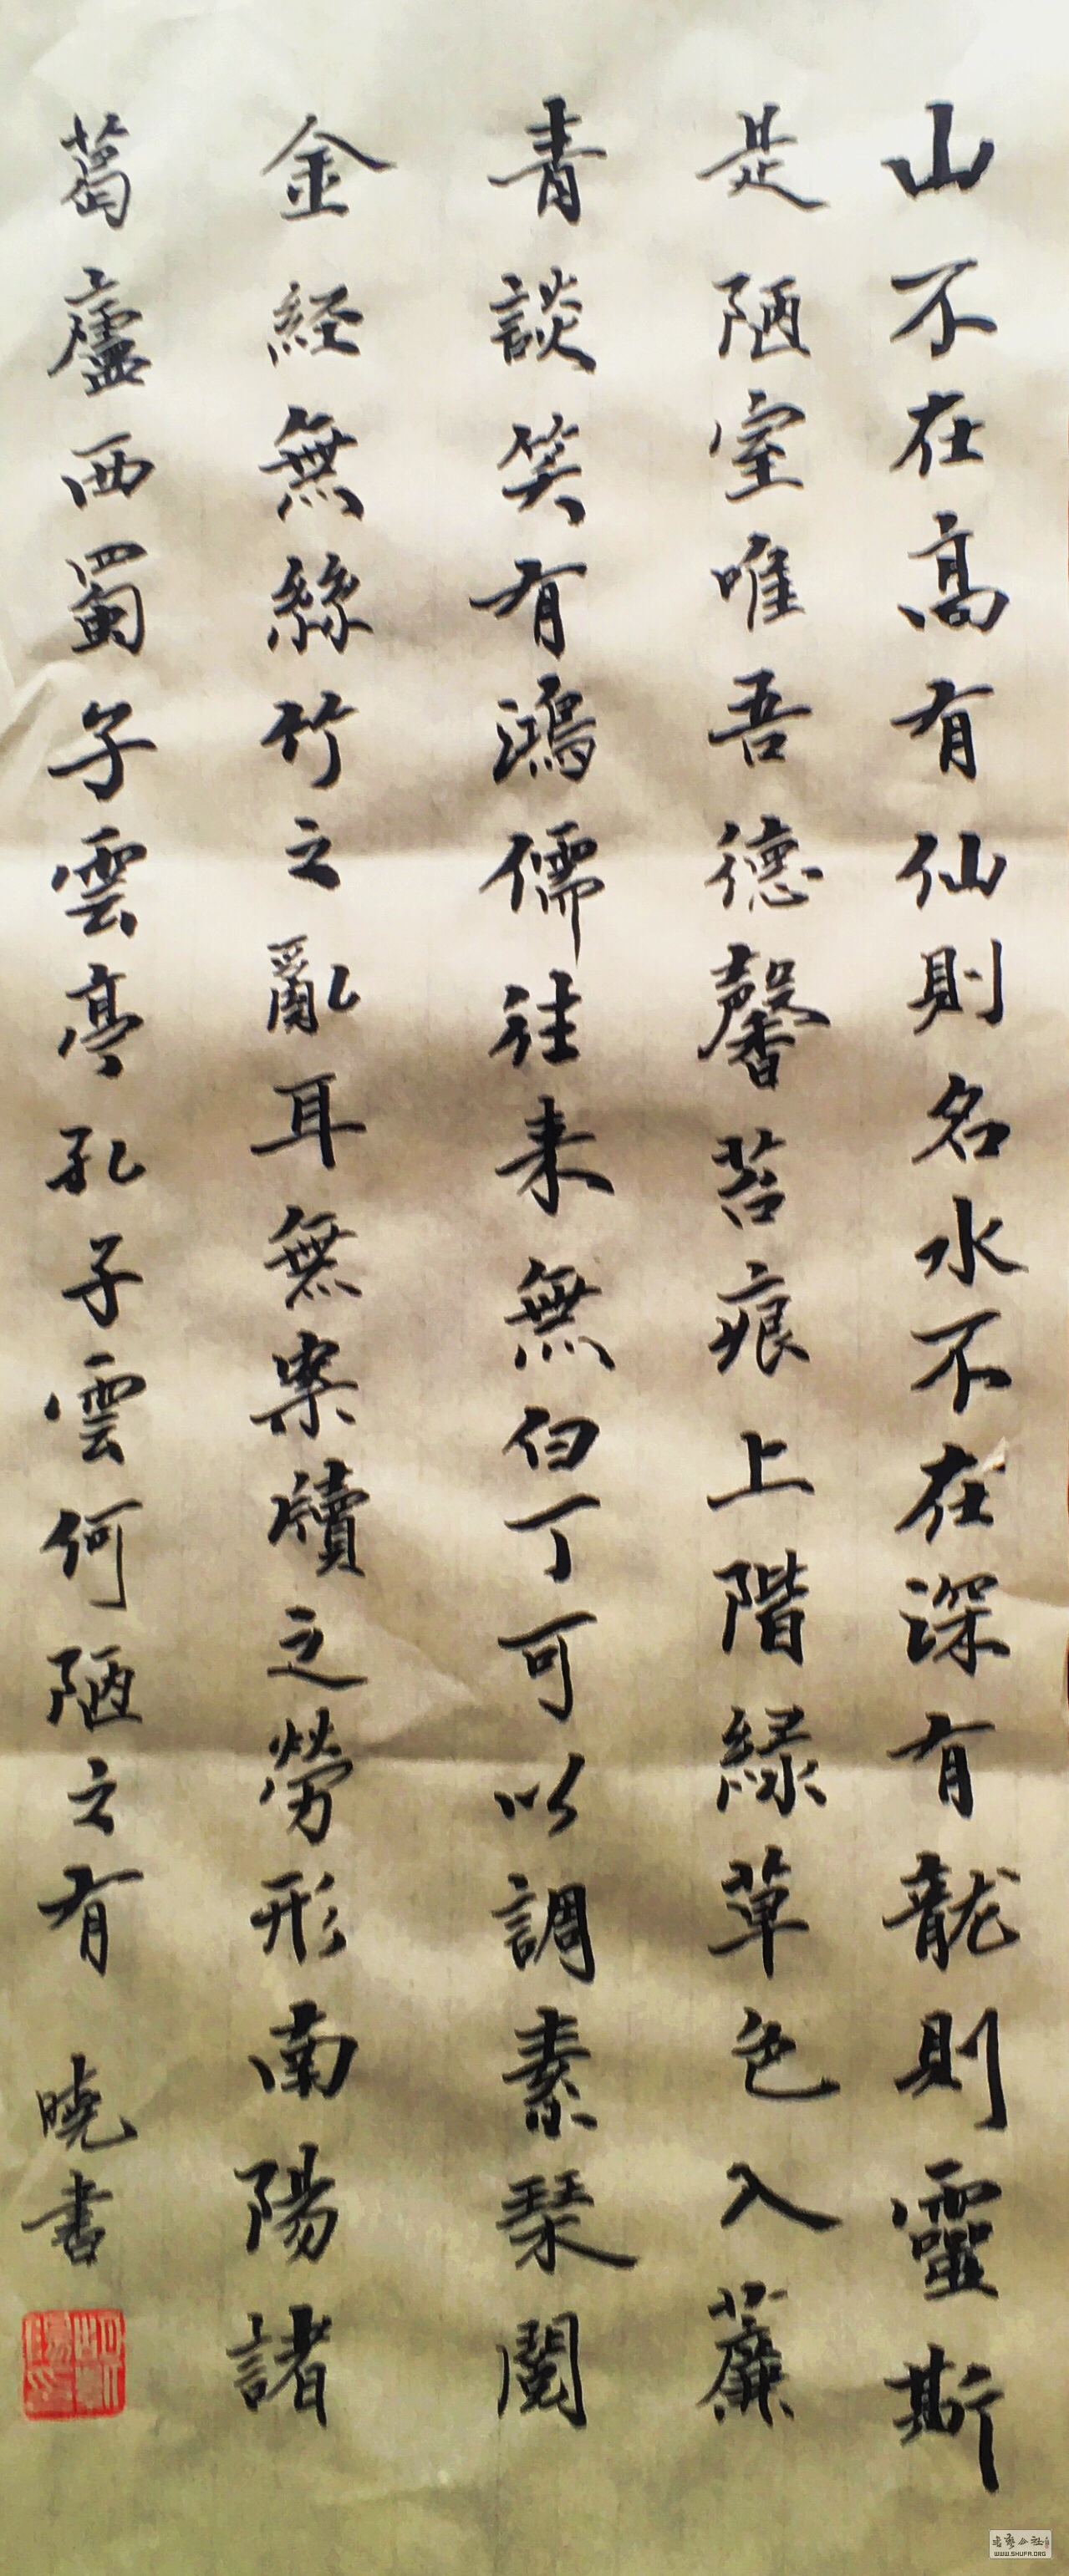 山不在高有仙則名水不在深有龍則靈斯
是陋室唯吾德馨苔痕上階緑草色入簾
青談笑有鴻儒往来無白丁可以調素琴閱
金経無絲竹之亂耳無案牘之勞形南陽諸
葛廬西蜀子雲亭孔子雲何陋之有
曉書
WWW.SHUFA.ORG